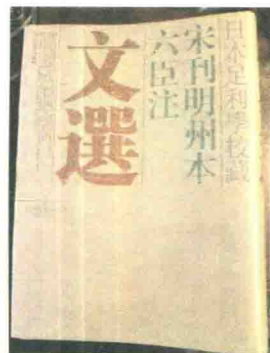 日本足利學校藏
宋刊明州本
六臣注
文選